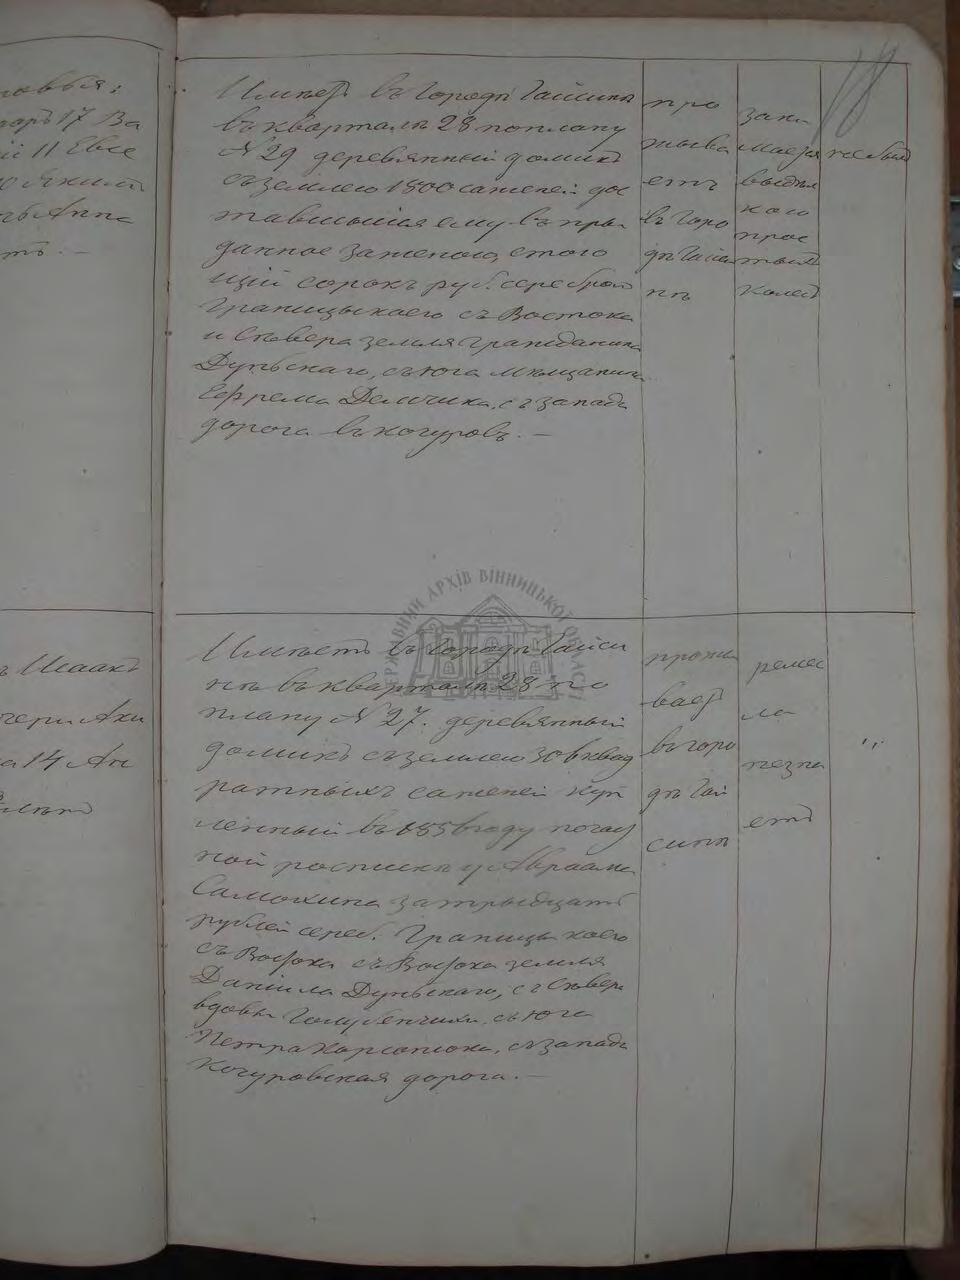 18
Имѣетъ въ Городѣ Гайсинѣ
въ кварталѣ 28 по плану
№ 29 деревянный домикъ
съ землею 1800 саженей дос
тавшыйся ему въ при
данное за женою, стою
щій сорокъ руб. серебромъ
Границы коего съ Востока
и Сѣвера земля гражданина
Дульскаго, съ юга мѣщанина
Ефрема Демчика, съ запада
дорога въ кочуровъ. —
про
жыва
етъ
въ Горо
дѣ Гайси
нѣ
зани
мается
выдѣл
кою
прос
тыхъ
колесъ
не былъ
Имѣетъ въ Городѣ Гайси
нѣ въ кварталѣ 28 по
плану № 27. деревянный
домикъ съ землею 306 квад
ратныхъ саженей куп
ленный въ 1856 году
ной роспискѣ у Авраама
Самохина за трыдцать
рублей сереб. Границы коего
съ Востока съ Востока земля
Даніила Дульскаго, съ Сѣвера
вдовы Голубенчихи, съ юга
Петра, съ запада
Кочуровская дорога. —
прожи
ваетъ
въ горо
дѣ Гай
синѣ
ремес
ла
незна
етъ
"
новья:
17 Ва
ій 11 Евсе
Анна
Исаакъ
чери Аки
на 14 Ан
ДЕРЖАВНИЙ АРХІВ ВІННИЦЬКОЇ ОБЛАСТІ